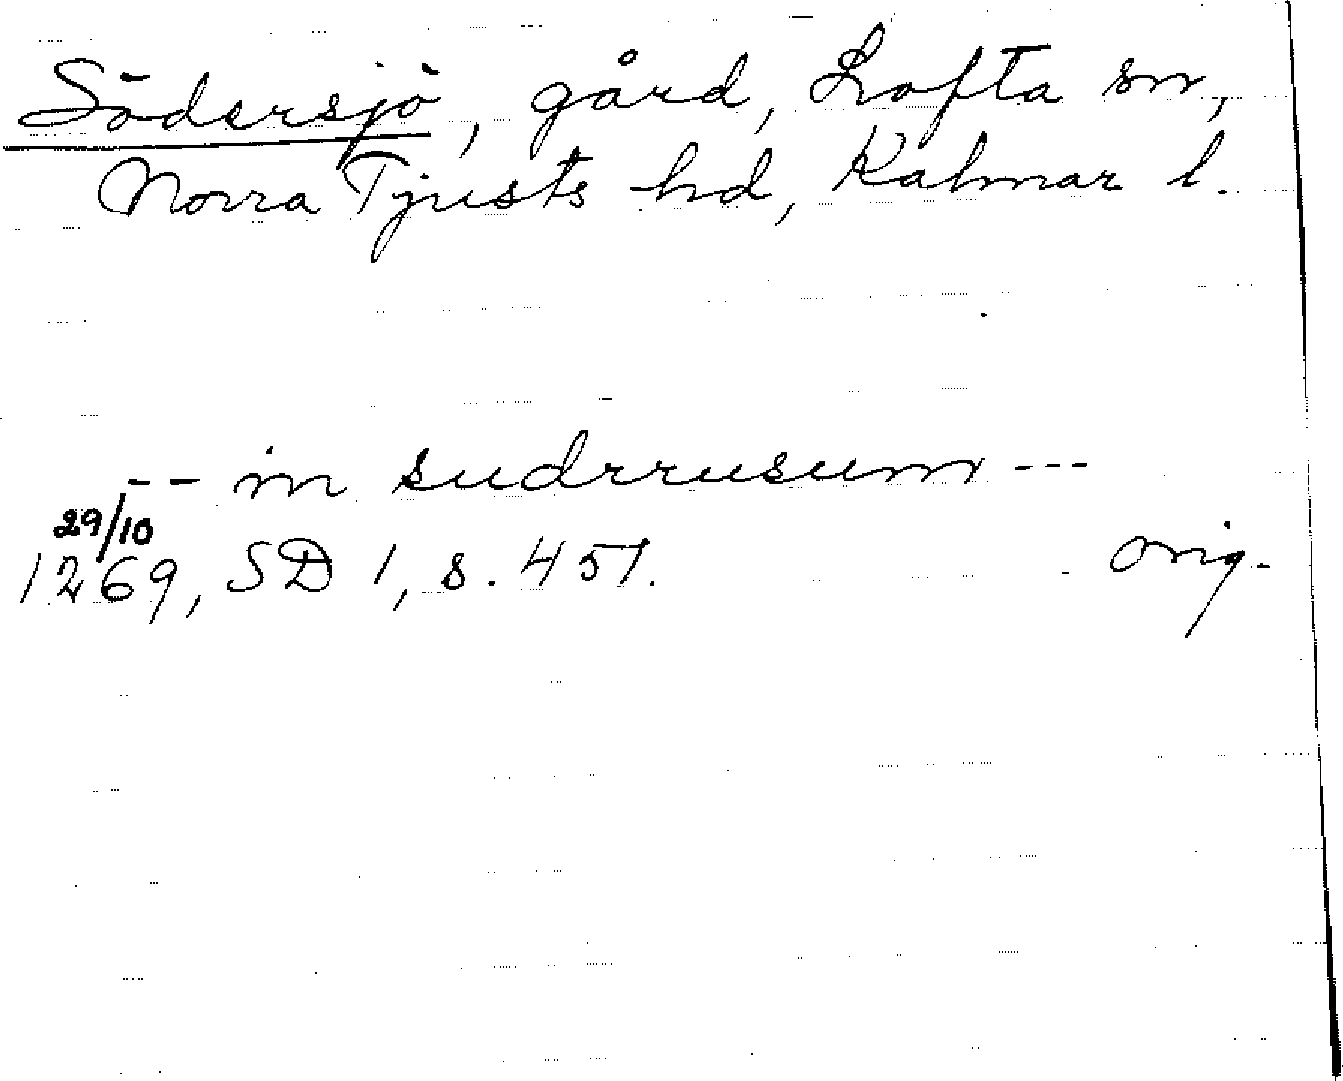 Södersjö, gård, Lofta sn,
Norra Tjusts hd, Kalmar l.
-- in sudrrusum ---
29/10
1269, SD 1, s. 451.
orig.